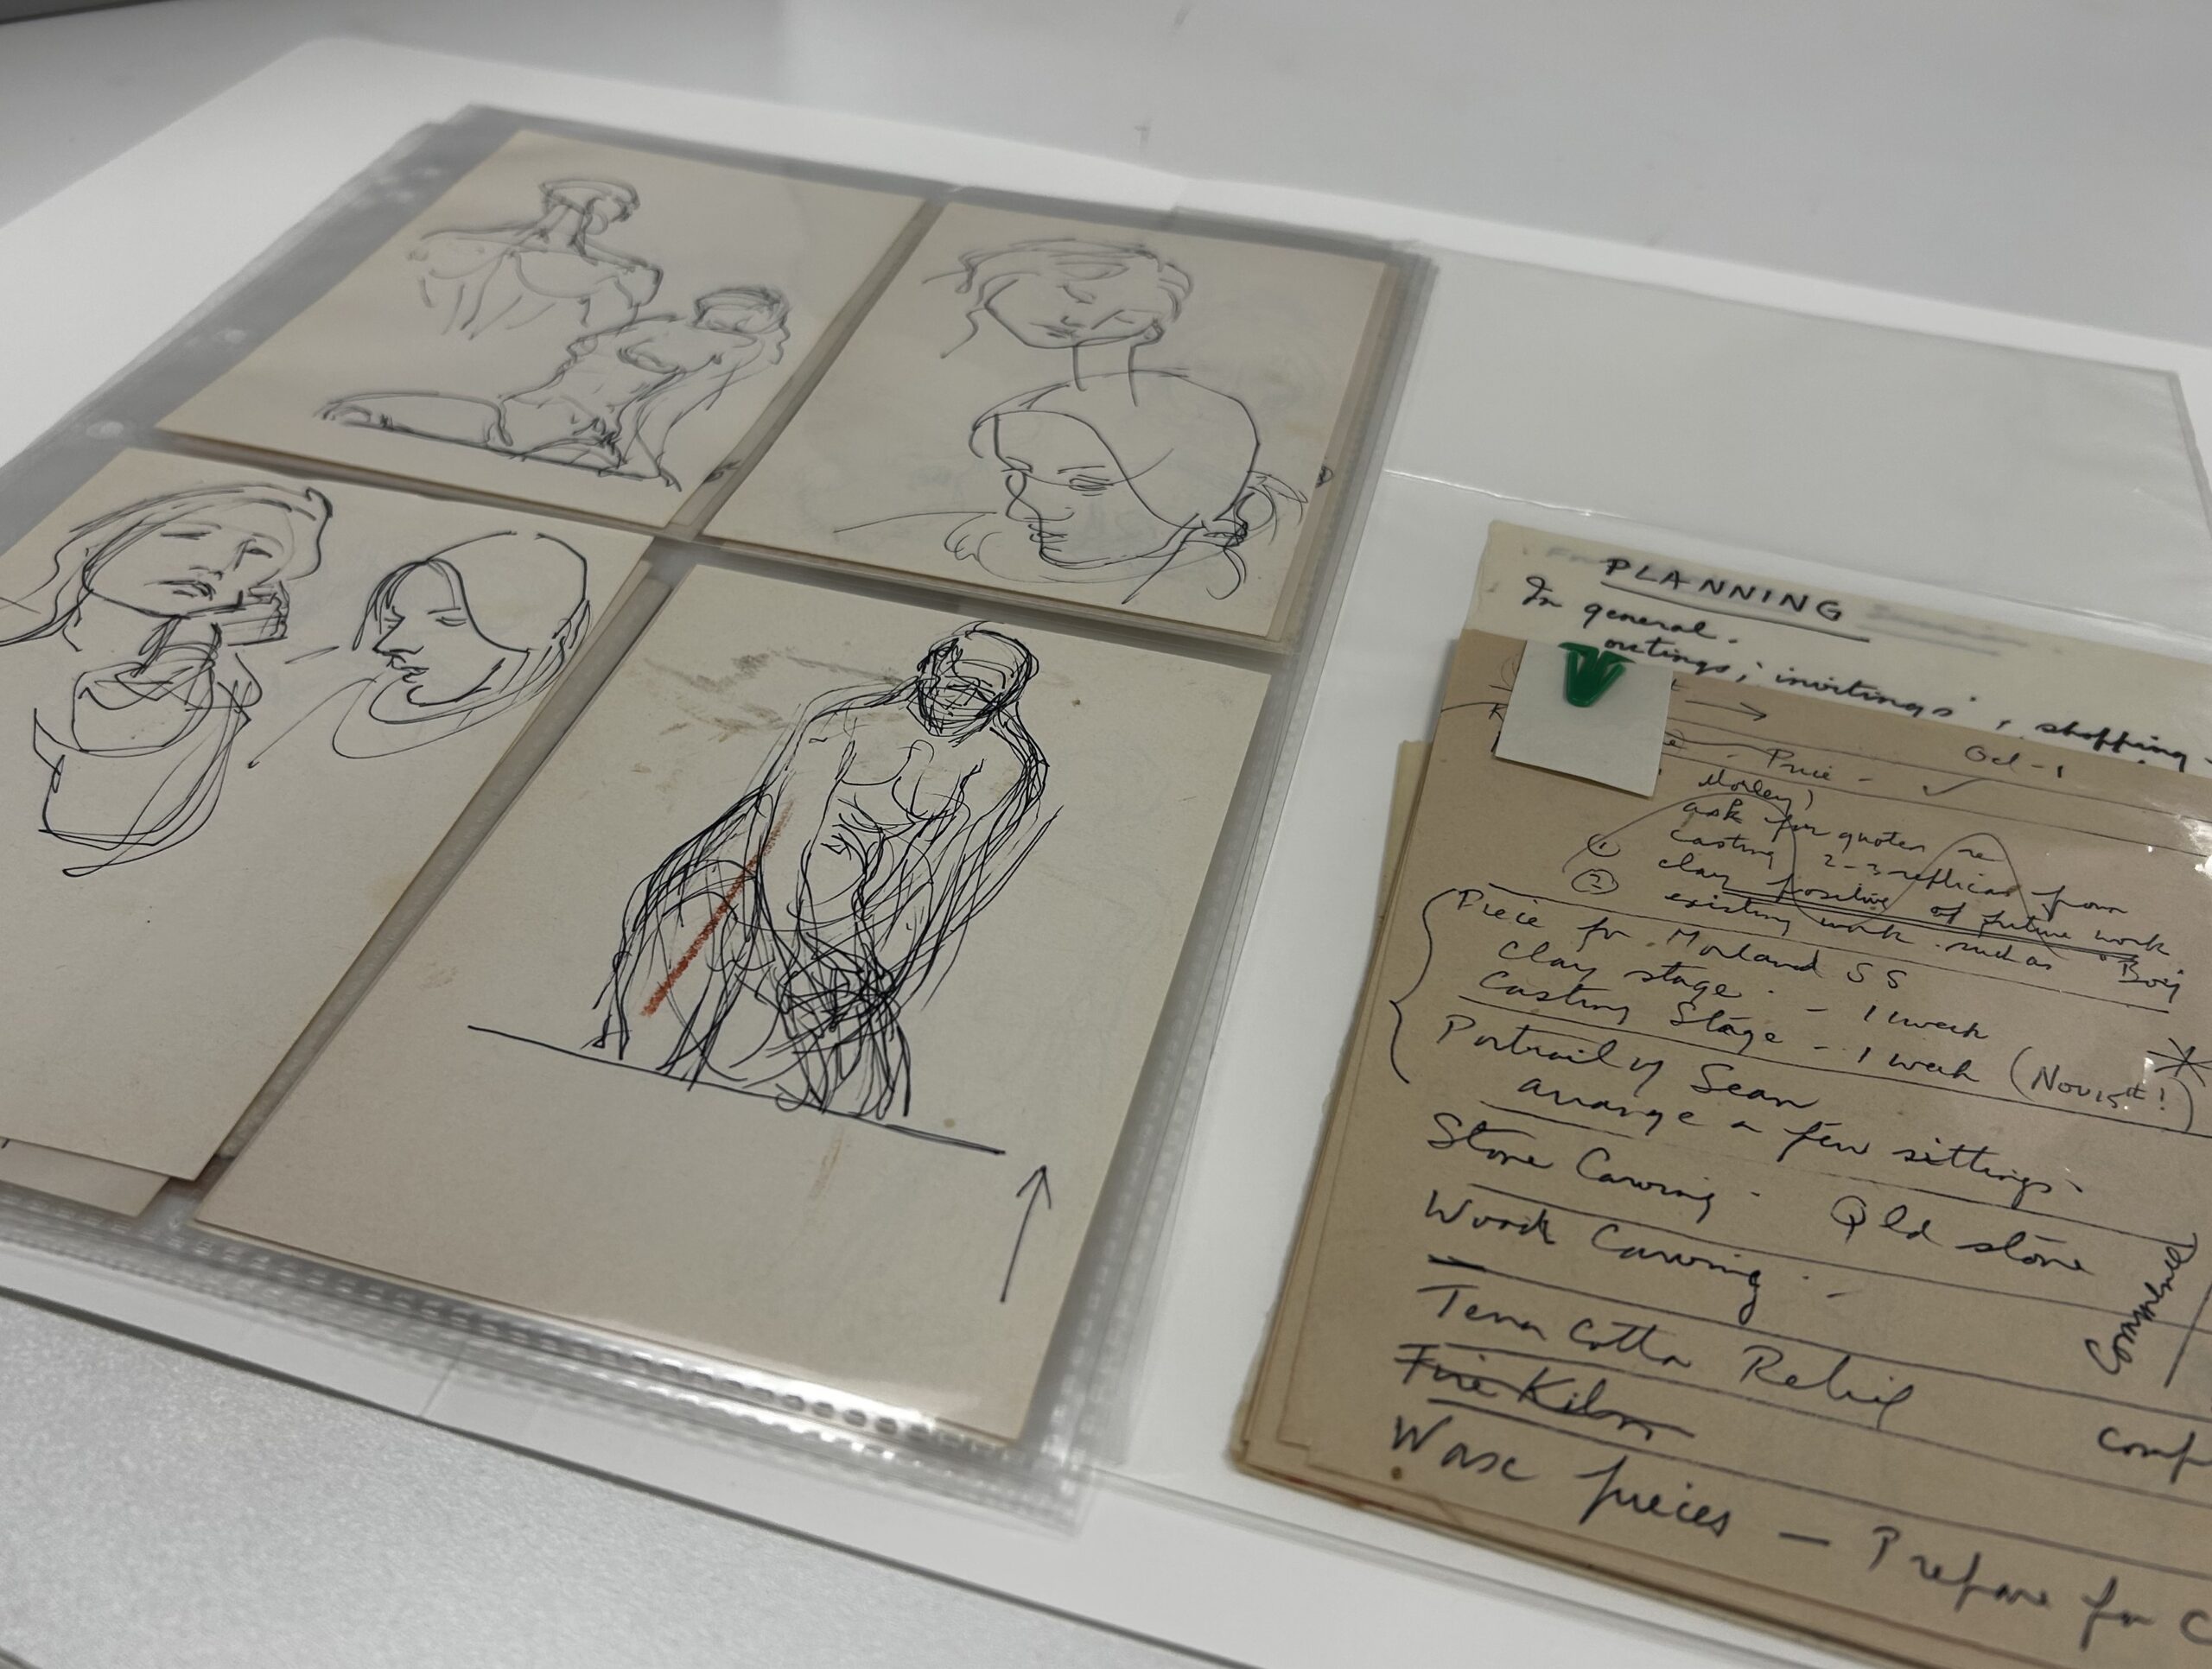 PLANNING
In general.
outings, invitings, shopping -
Oct - 1
Price -
Morley)
ask for quotes re
① casting 2-3 replicas from
clay positive of future work
② existing work such as "Boy
Piece for Morland SS
Clay stage - 1 week
Casting Stage - 1 week (Nov 15th!)
Portrait of Sean
arrange a few sittings.
Stone Carving. Qld stone
Wood Carving. -
Commence
Terra Cotta Relief
Fire Kiln
comp
Wase pieces - Prepare for C